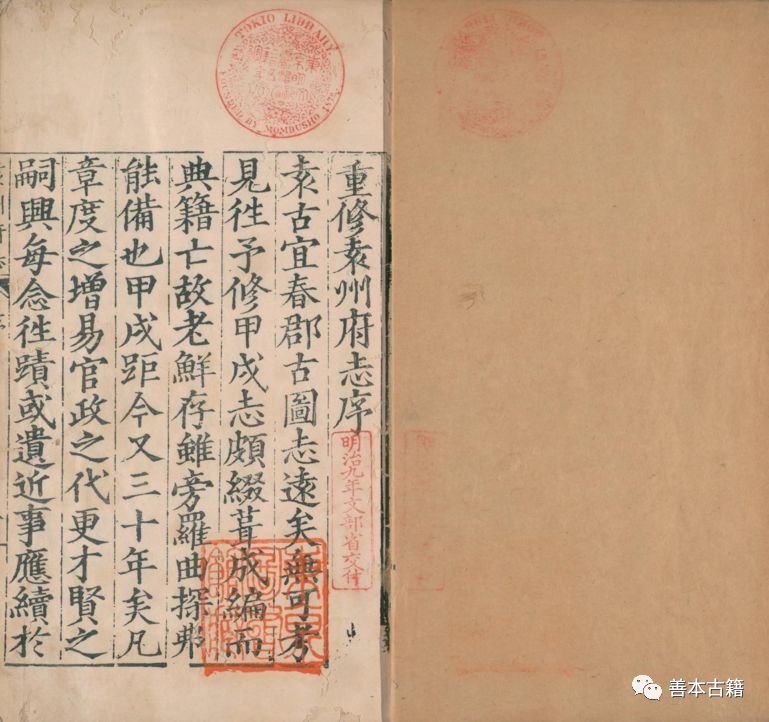 重修袁州府志序
袁古宜春郡古圖志遠矣無可考
見徃予修甲戌志頗綴葺成編而
典籍亡故老鮮存雖旁羅曲探弗
能備也甲戌距今又三十年矣凡
章度之增易官政之代更才賢之
嗣興每念徃蹟或遺近事應續於
TOKIO LIBRARY
FOUNDED BY MOMBUSHO 1872
明治九年文部省交付
善本古籍